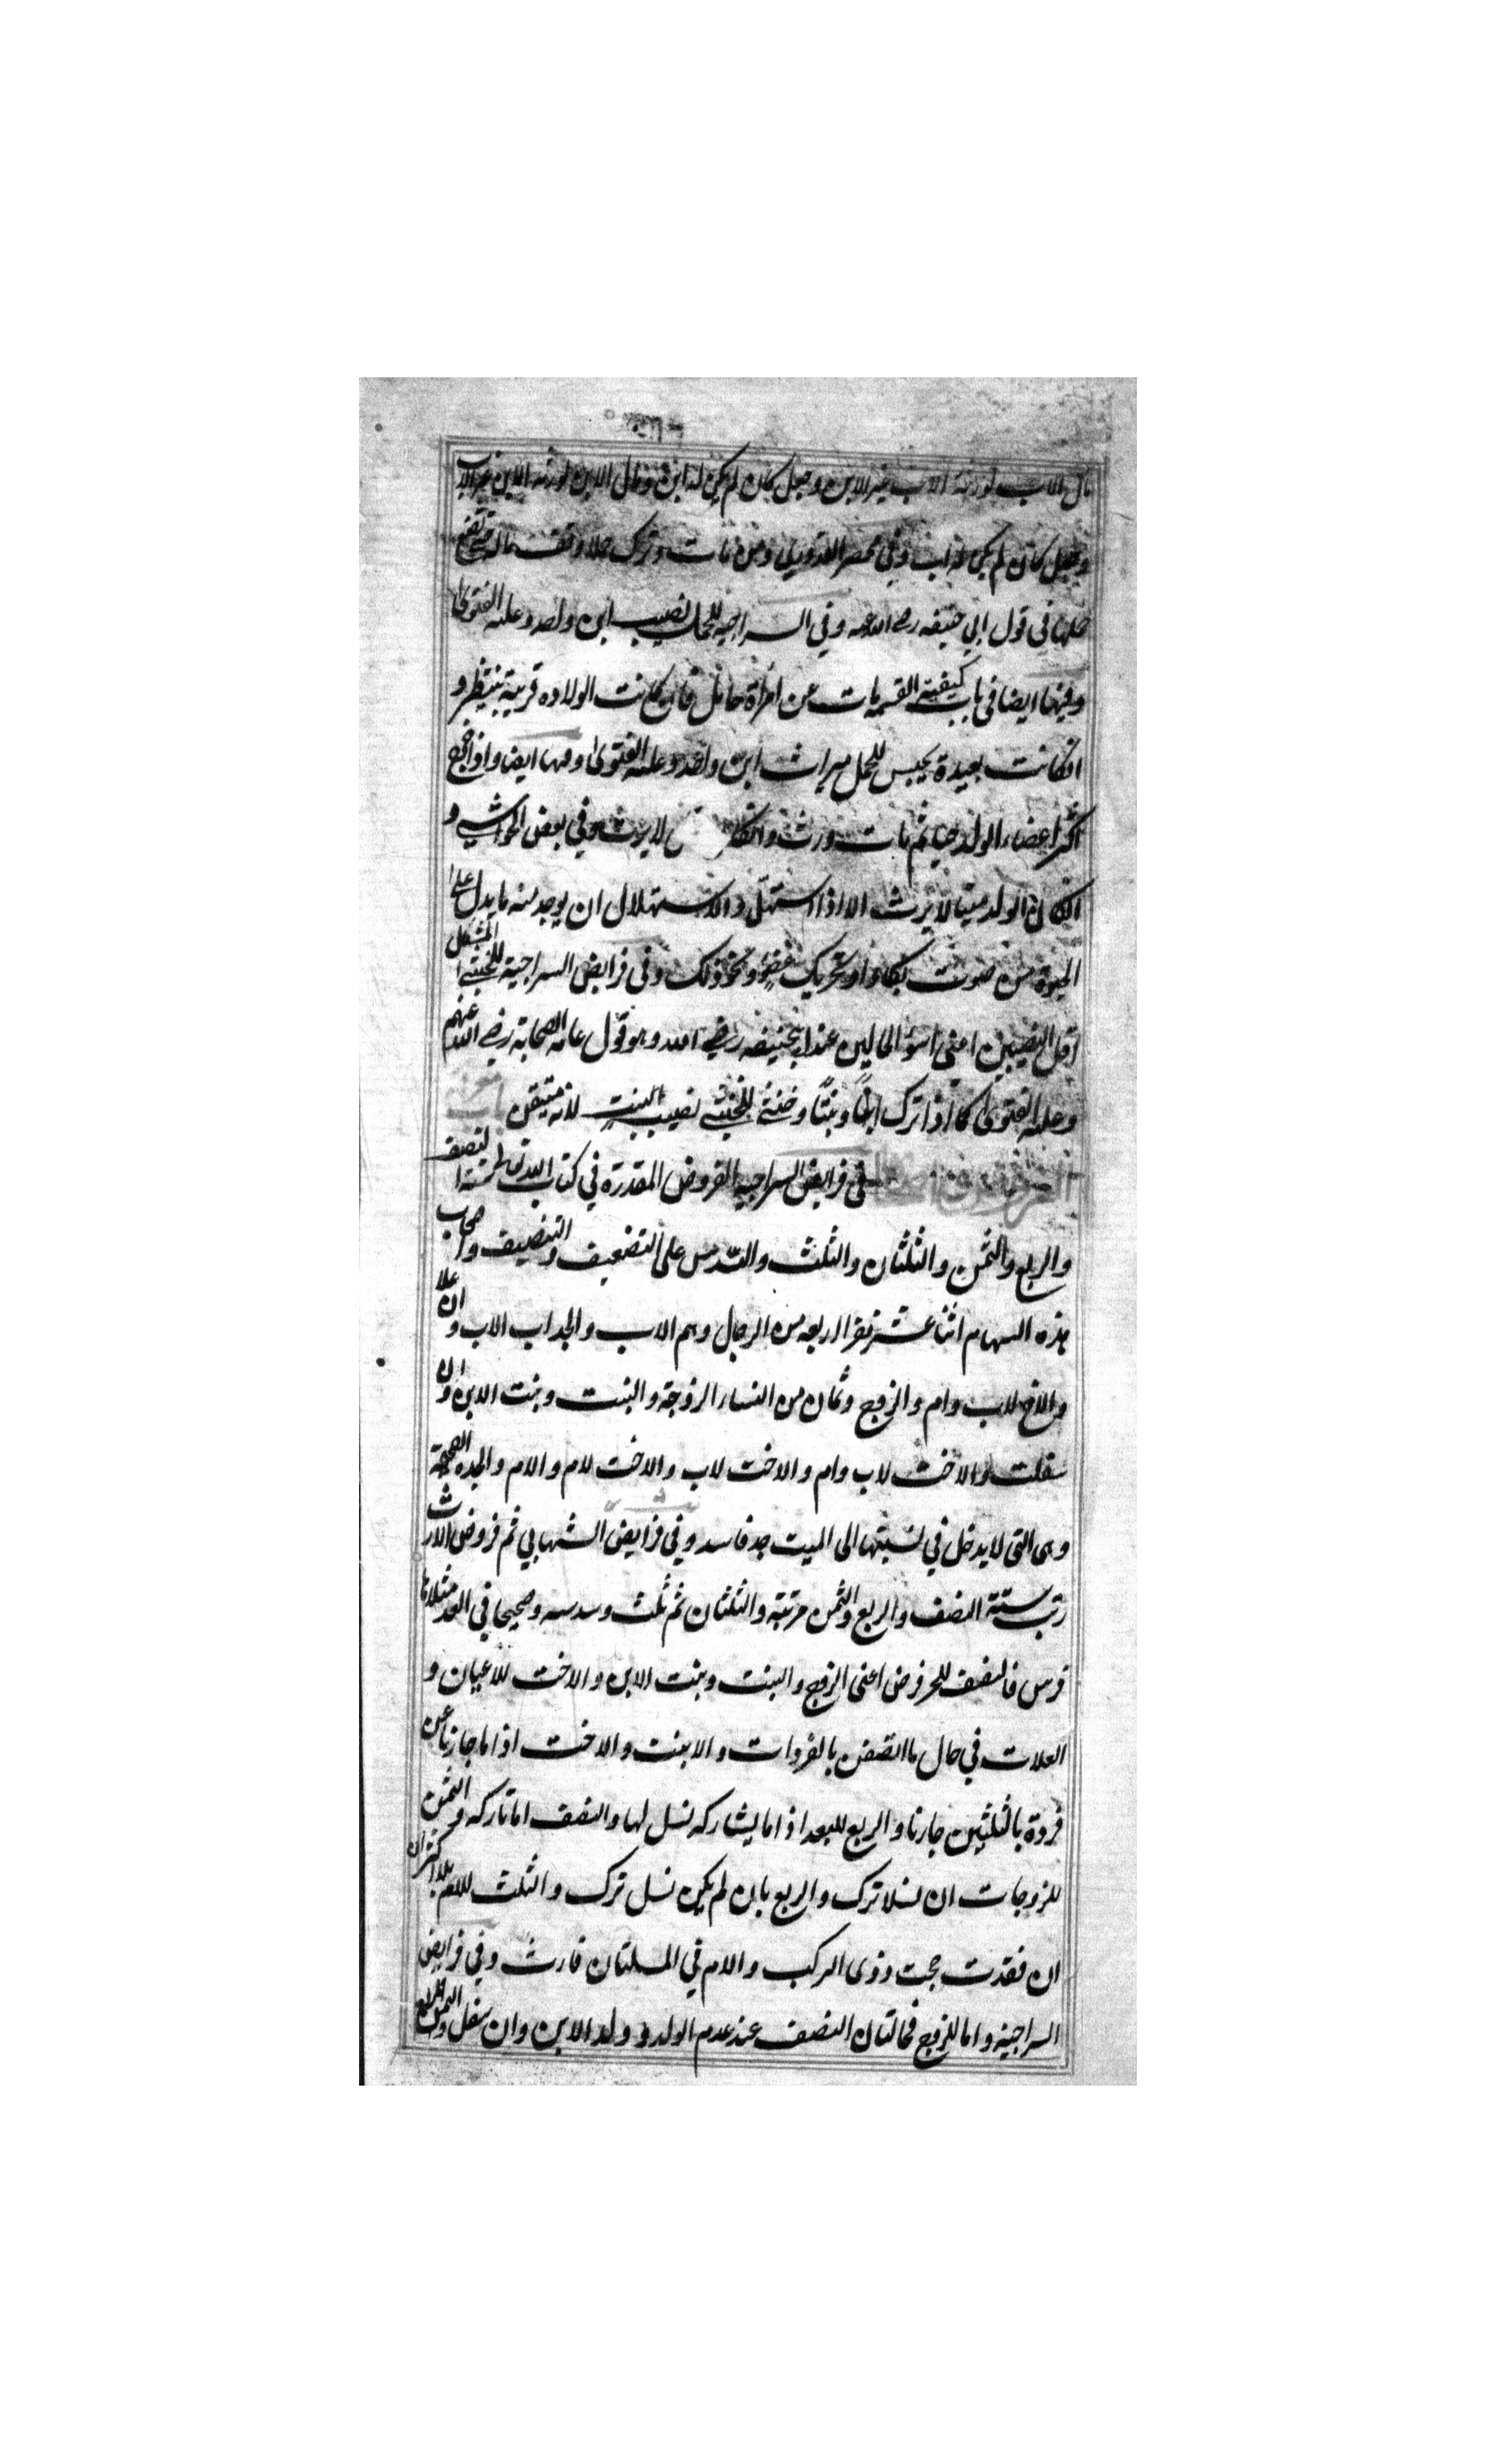 مال الاب لورثة الاب غير الابن وجعل كان لم يكن له ابن ومال الابن لورثة الابن غير الاب
وجعل كان لم يكن له اب وفي مختصر القدوري ومن مات وترك حملا وقف ماله حتى تضع
حملها في قول ابي حنيفه رحمه الله وفي السراجيه للحمل نصيب ابن واحد وعليه الفتوى
وفيها ايضا في باب كيفية القسمة مات عن امرأة حامل فان كانت الولاده قريبة ينتظر و
انكانت بعيدة يحبس للحمل ميراث ابن واحد وعليه الفتوى وفيها ايضا واذا خرج
اكثر اعضاء الولد حيا ثم مات ورث وانكان لا يرث وفي بعض الحواشي و
انكان الولد ميتا لا يرث الا اذا استهل والاستهلال ان يوجد منه ما يدل على
الحيوة من صوت بكاء او تحريك عضو ونحو ذلك وفي فرايض السراجية للخنثى المشكل
اقل النصيبين اعنى اسوء الحالين عند ابيحنيفه رضي الله وهو قول عامة الصحابة رضي الله عنهم
وعليه الفتوى كما اذا ترك ابنا وبنتا وخنثى للخنثى نصيب البنت لانه متيقن
في فرايض السراجيه الفروض المقدرة في كتاب الله تعالى ستة النصف
والربع والثمن والثلثان والثلث والسدس على التضعيف والتنصيف واصحاب
هذه السهام اثنا عشر نفرا اربعه من الرجال وهم الاب والجد اب الاب وان علا
والاخ لاب وام والزوج وثمان من النساء الزوجة والبنت وبنت الابن وان
سفلت والاخت لاب وام والاخت لاب والاخت لام والام والجده الصحيحة
وهى التى لا يدخل في نسبتها الى الميت جد فاسد وفي فرايض الشهابي ثم فروض الارث
رتب ستة النصف والربع والثمن مرتبة والثلثان ثم ثلث وسدسه وصحيحا في العد
فالنصف للحر فرض اعنى الزوج والبنت وبنت الابن والاخت للاعيان و
العلات في حال ما اتصفن بالفردات والابنت والاخت اذا ما جازتا عن
فردة بالثلثين جازتا والربع للبعد اذا ما يشاركه نسل لها والنصف اما تاركه والثمن
للزوجات ان نسلا ترك والربع بان لم يكن نسل ترك والثلث للام
ان فقدت حجب وذى الركب والام في المسلتان فارث وفي فرايض
السراجية واما للزوج فحالتان النصف عند عدم الولد وولد الابن وان سفل والربع